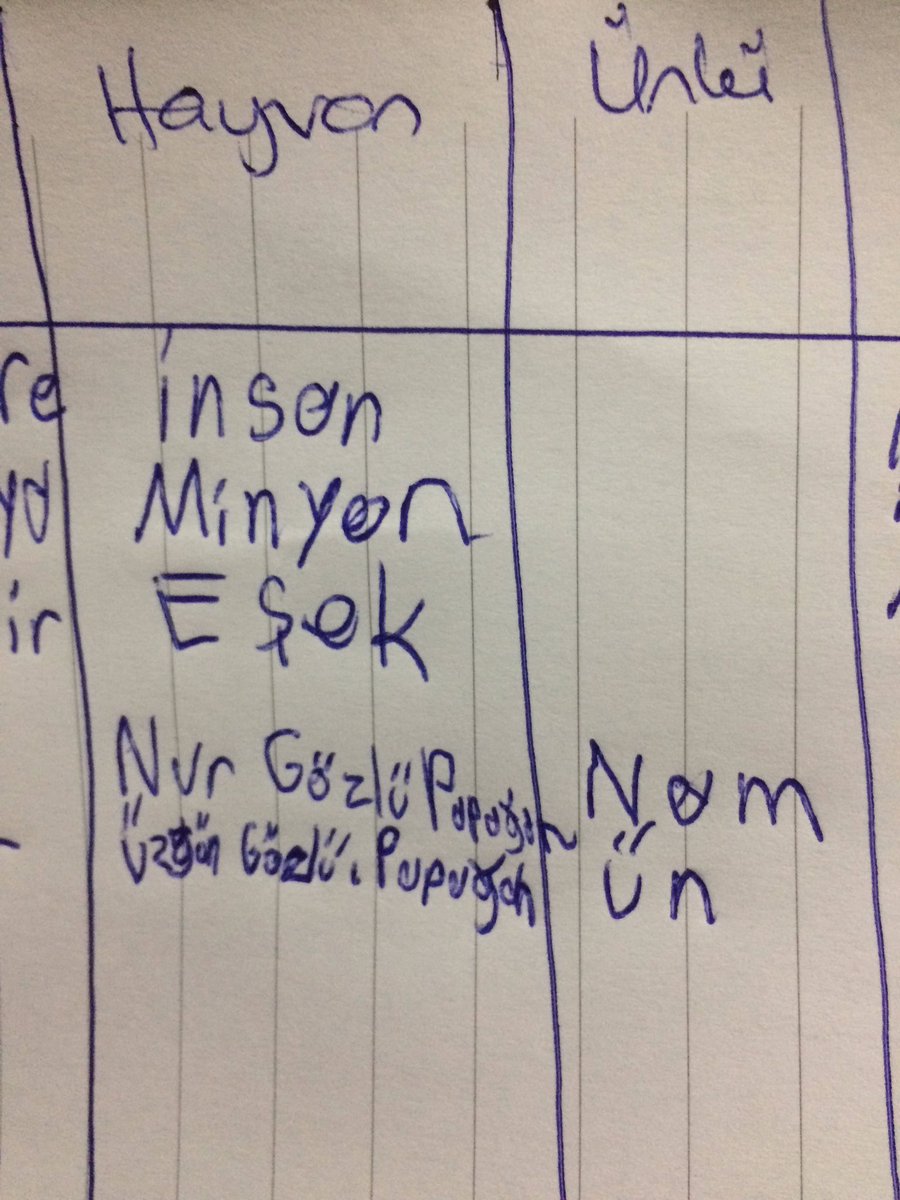 Hayvan Ünlü
re İnsan
yd Minyon
ir Eşek
Nur Gözlü Papağan Nam
Üzgün Gözlü Papağan Ün